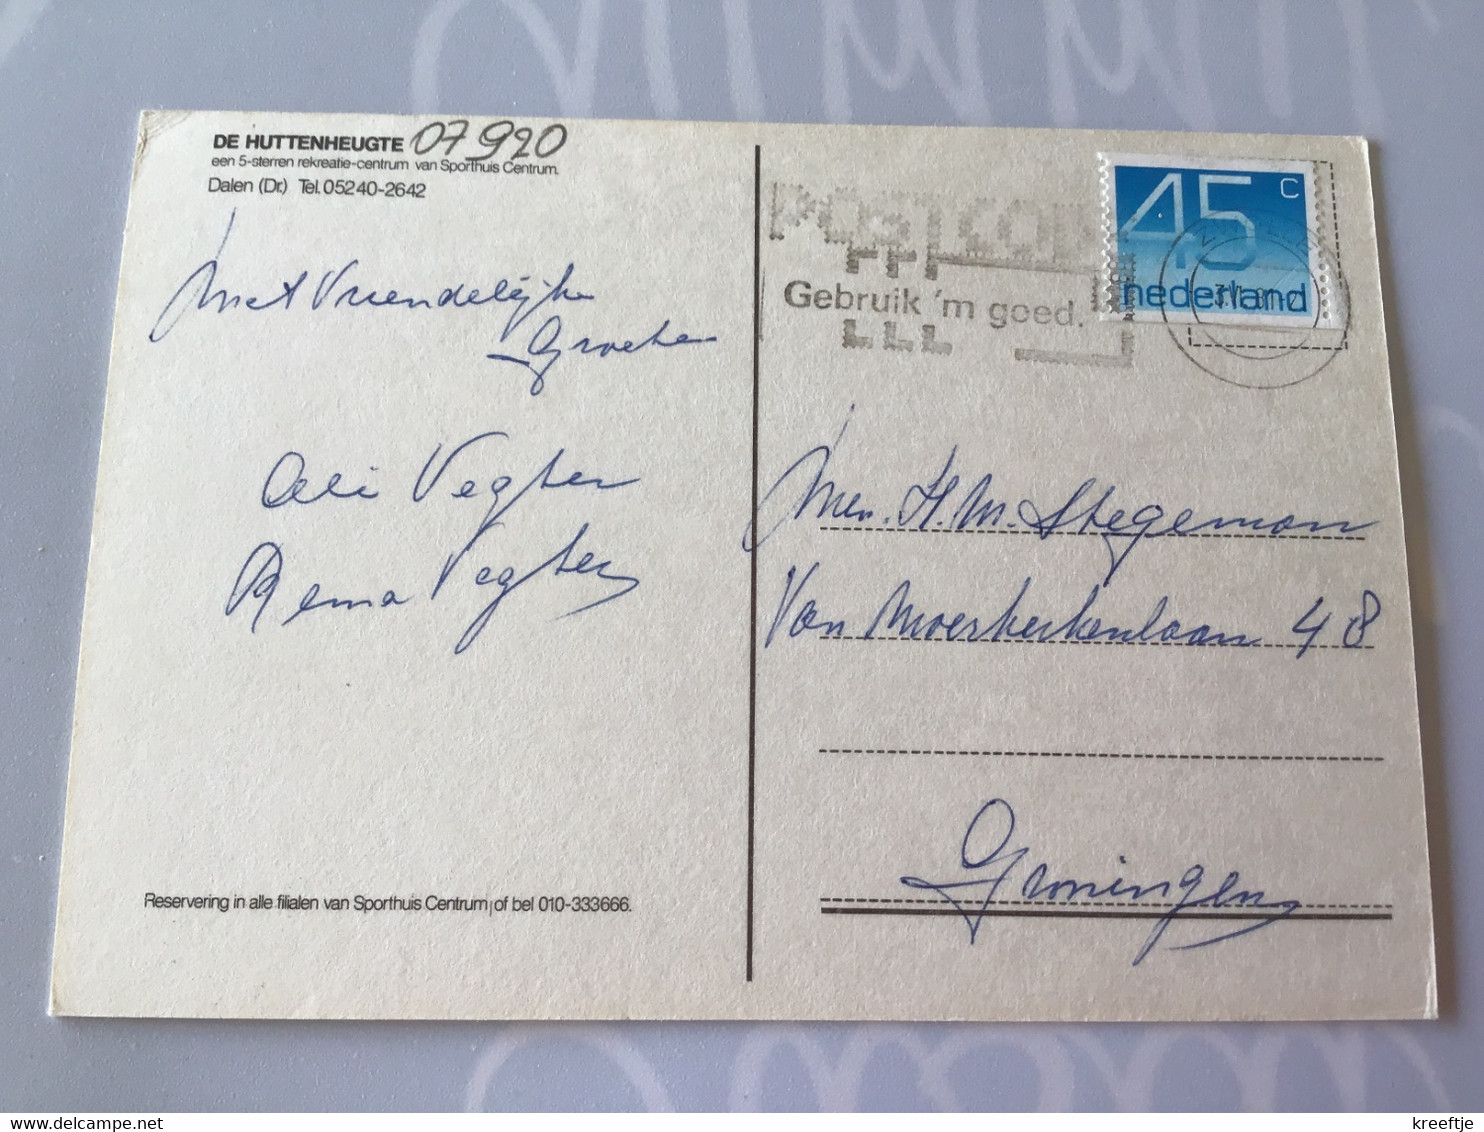 DE HUTTENHEUGTE 07920
een 5-sterren rekreatie-centrum van Sporthuis Centrum.
Dalen (Dr.) Tel. 05240-2642
Met Vriendelijke
Groeten
Ali Vegter
Rema Vegter
Reservering in alle filialen van Sporthuis Centrum of bel 010-333666.
POSTCODE
Gebruik 'm goed.
45 c
nederland
Mevr. H.M. Stegeman
Van Moerkerkenlaan 48
Groningen
delcampe.net
kreeftje